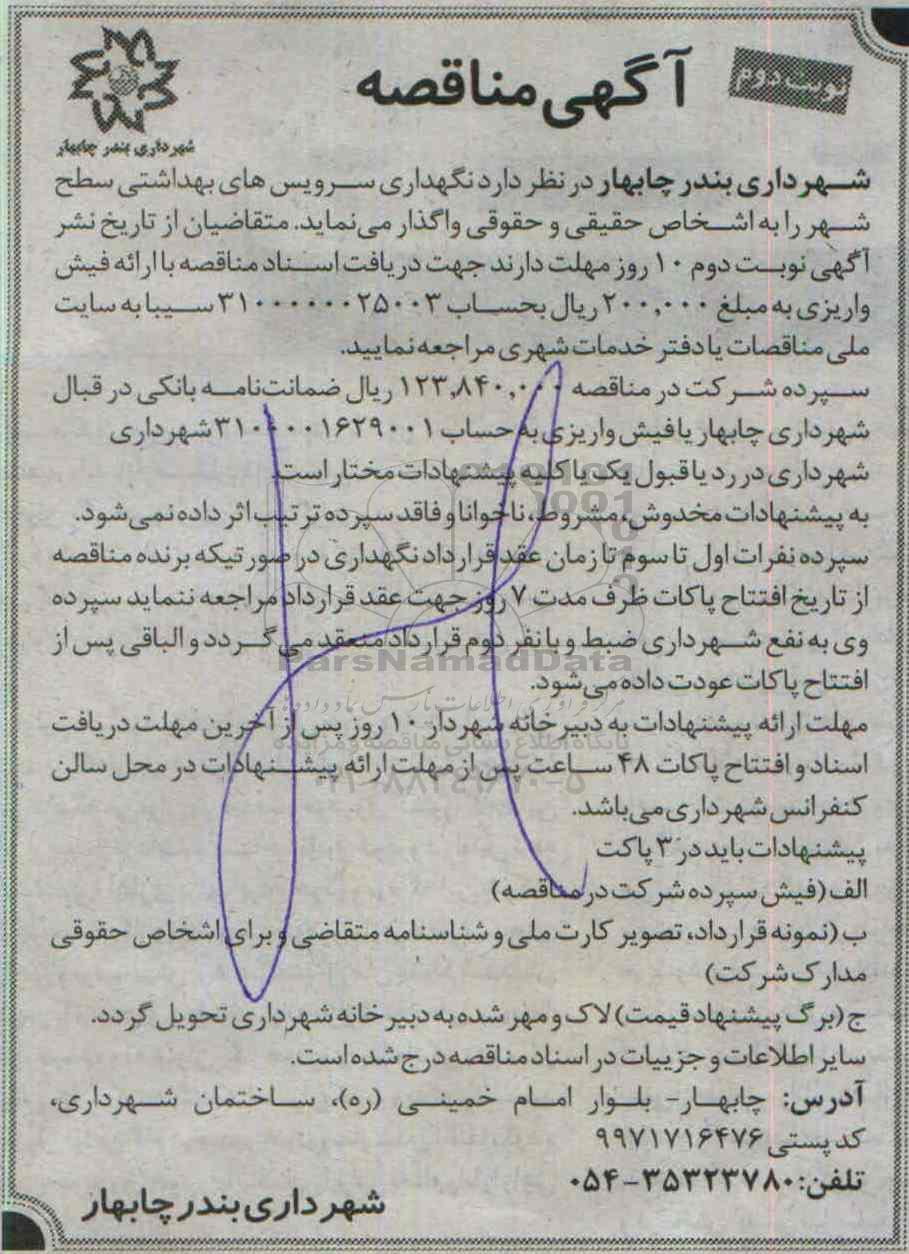 نوبت دوم
آگهی مناقصه
شهرداری بندر چابهار
شهرداری بندر چابهار در نظر دارد نگهداری سرویس های بهداشتی سطح
شهر را به اشخاص حقیقی و حقوقی واگذار می‌نماید. متقاضیان از تاریخ نشر
آگهی نوبت دوم ۱۰ روز مهلت دارند جهت دریافت اسناد مناقصه با ارائه فیش
واریزی به مبلغ ۲۰۰,۰۰۰ ریال بحساب ۳۱۰۰۰۰۰۰۲۵۰۰۳ سیبا به سایت
ملی مناقصات یا دفتر خدمات شهری مراجعه نمایید.
سپرده شرکت در مناقصه ۱۲۳,۸۴۰,۰۰۰ ریال ضمانت‌نامه بانکی در قبال
شهرداری چابهار یا فیش واریزی به حساب ۳۱۰۰۰۰۱۶۲۹۰۰۱ شهرداری
شهرداری در رد یا قبول یک یا کلیه پیشنهادات مختار است.
به پیشنهادات مخدوش، مشروط، ناخوانا و فاقد سپرده ترتیب اثر داده نمی شود.
سپرده نفرات اول تا سوم تا زمان عقد قرارداد نگهداری در صورتیکه برنده مناقصه
از تاریخ افتتاح پاکات ظرف مدت ۷ روز جهت عقد قرارداد مراجعه ننماید سپرده
وی به نفع شهرداری ضبط و با نفر دوم قرارداد منعقد می گردد و الباقی پس از
افتتاح پاکات عودت داده می شود.
ParsNamadData
مهلت ارائه پیشنهادات به دبیرخانه شهردار ۱۰ روز پس از آخرین مهلت دریافت
اسناد و افتتاح پاکات ۴۸ ساعت پس از مهلت ارائه پیشنهادات در محل سالن
کنفرانس شهرداری می‌باشد.
پیشنهادات باید در ۳ پاکت
الف (فیش سپرده شرکت در مناقصه)
ب (نمونه قرارداد، تصویر کارت ملی و شناسنامه متقاضی و برای اشخاص حقوقی
مدارک شرکت)
ج (برگ پیشنهاد قیمت) لاک و مهر شده به دبیرخانه شهرداری تحویل گردد.
سایر اطلاعات و جزییات در اسناد مناقصه درج شده است.
آدرس: چابهار- بلوار امام خمینی (ره)، ساختمان شهرداری،
کد پستی ۹۹۷۱۷۱۶۴۷۶
تلفن: ۳۵۳۲۳۷۸۰-۰۵۴
شهرداری بندر چابهار